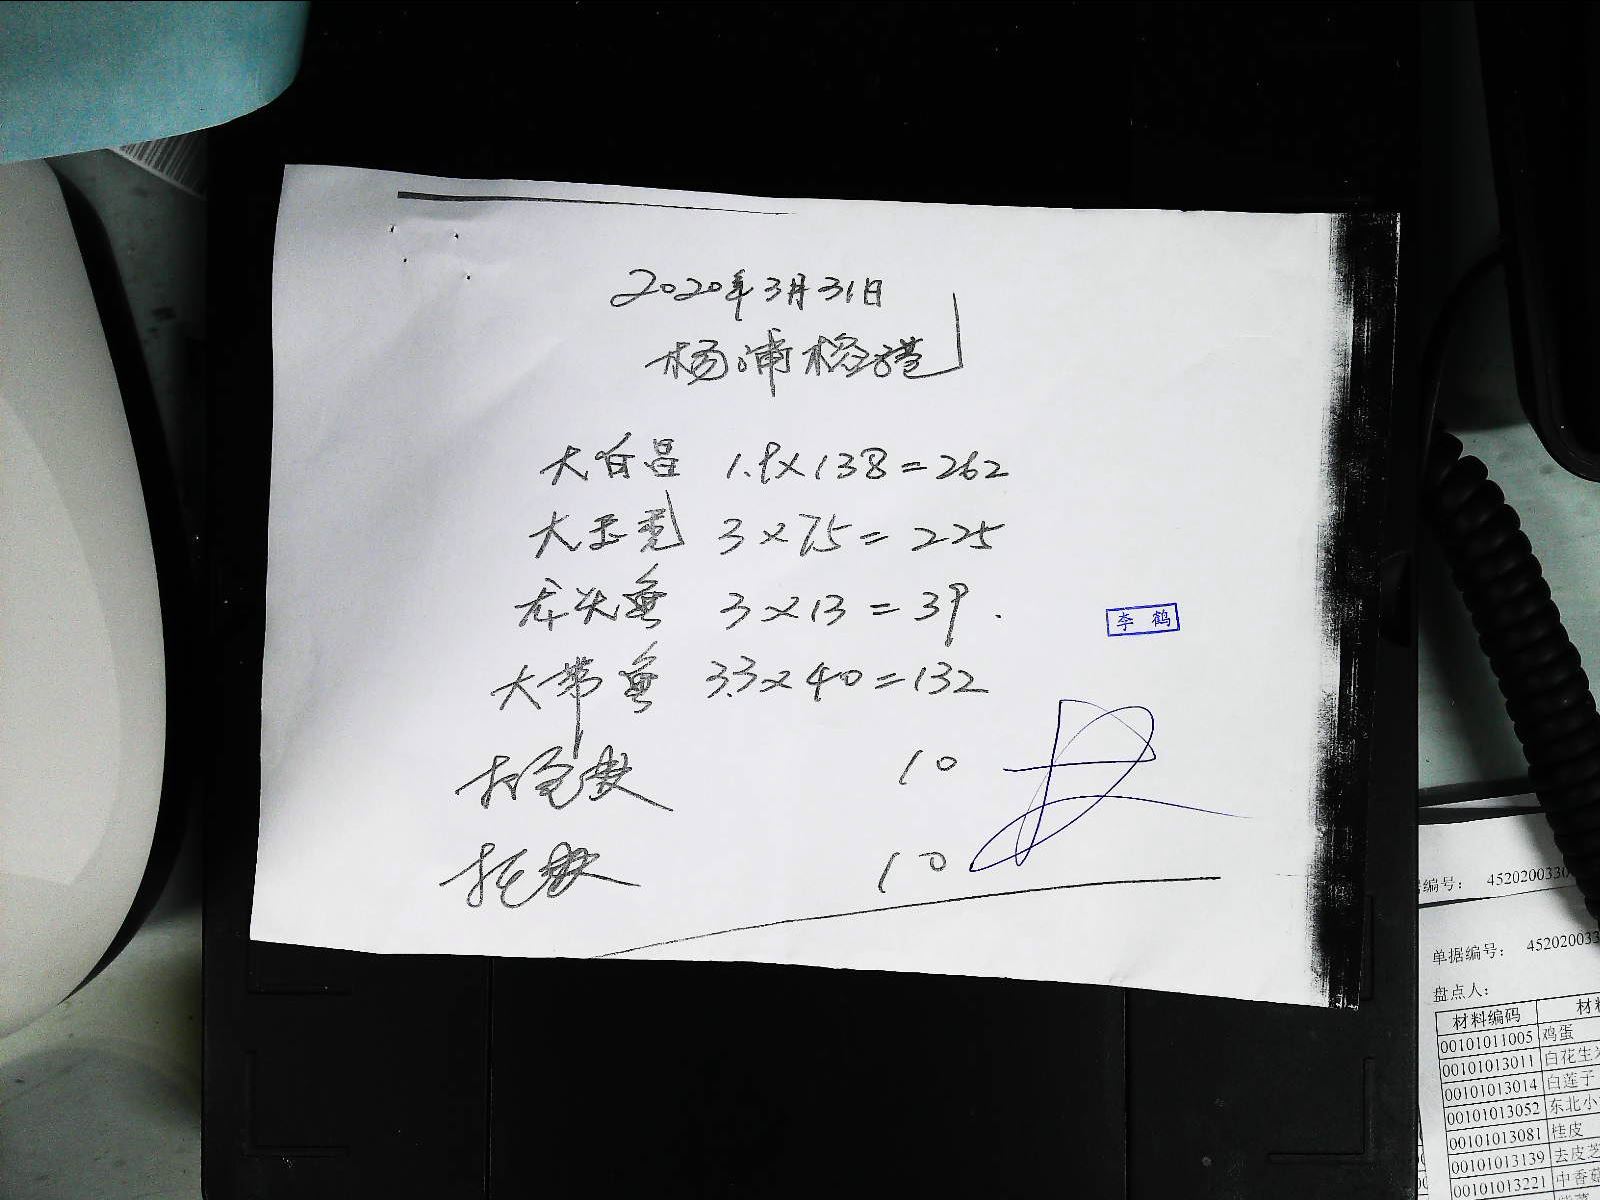 2020年3月31日
杨浦榕港
大白昌 1.9×138=262
大玉秃 3×75=225
龙头鱼 3×13=39.
大带鱼 3.3×40=132
打包费 10
托费 10
李鹤
编号: 4520200330
单据编号: 45202003
盘点人:
材料编码 材料
00101011005 鸡蛋
00101013011 白花生米
00101013014 白莲子
00101013052 东北小
00101013081 桂皮
00101013139 去皮芝
00101013221 中香菇